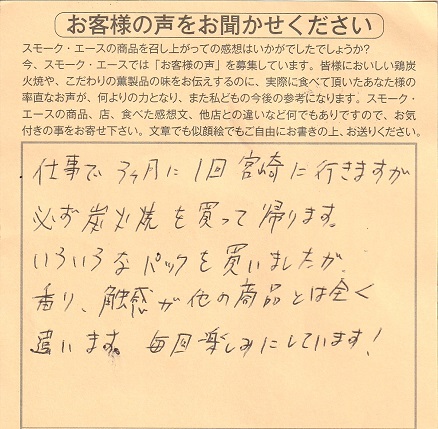 お客様の声をお聞かせください
スモーク・エースの商品を召し上がっての感想はいかがでしたでしょうか?
今、スモーク・エースでは「お客様の声」を募集しています。皆様においしい鶏炭
火焼や、こだわりの薫製品の味をお伝えするのに、実際に食べて頂いたあなた様の
率直なお声が、何よりの力となり、また私どもの今後の参考になります。スモーク・
エースの商品、店、食べた感想文、他店との違いなど何でもありですので、お気
付きの事をお寄せ下さい。文章でも似顔絵でもご自由にお書きの上、お送りください。
仕事で3ヶ月に1回宮崎に行きますが
必ず炭火焼を買って帰ります。
いろいろなパックを買いましたが、
香り、触感が他の商品とは全く
違います。毎回楽しみにしています!